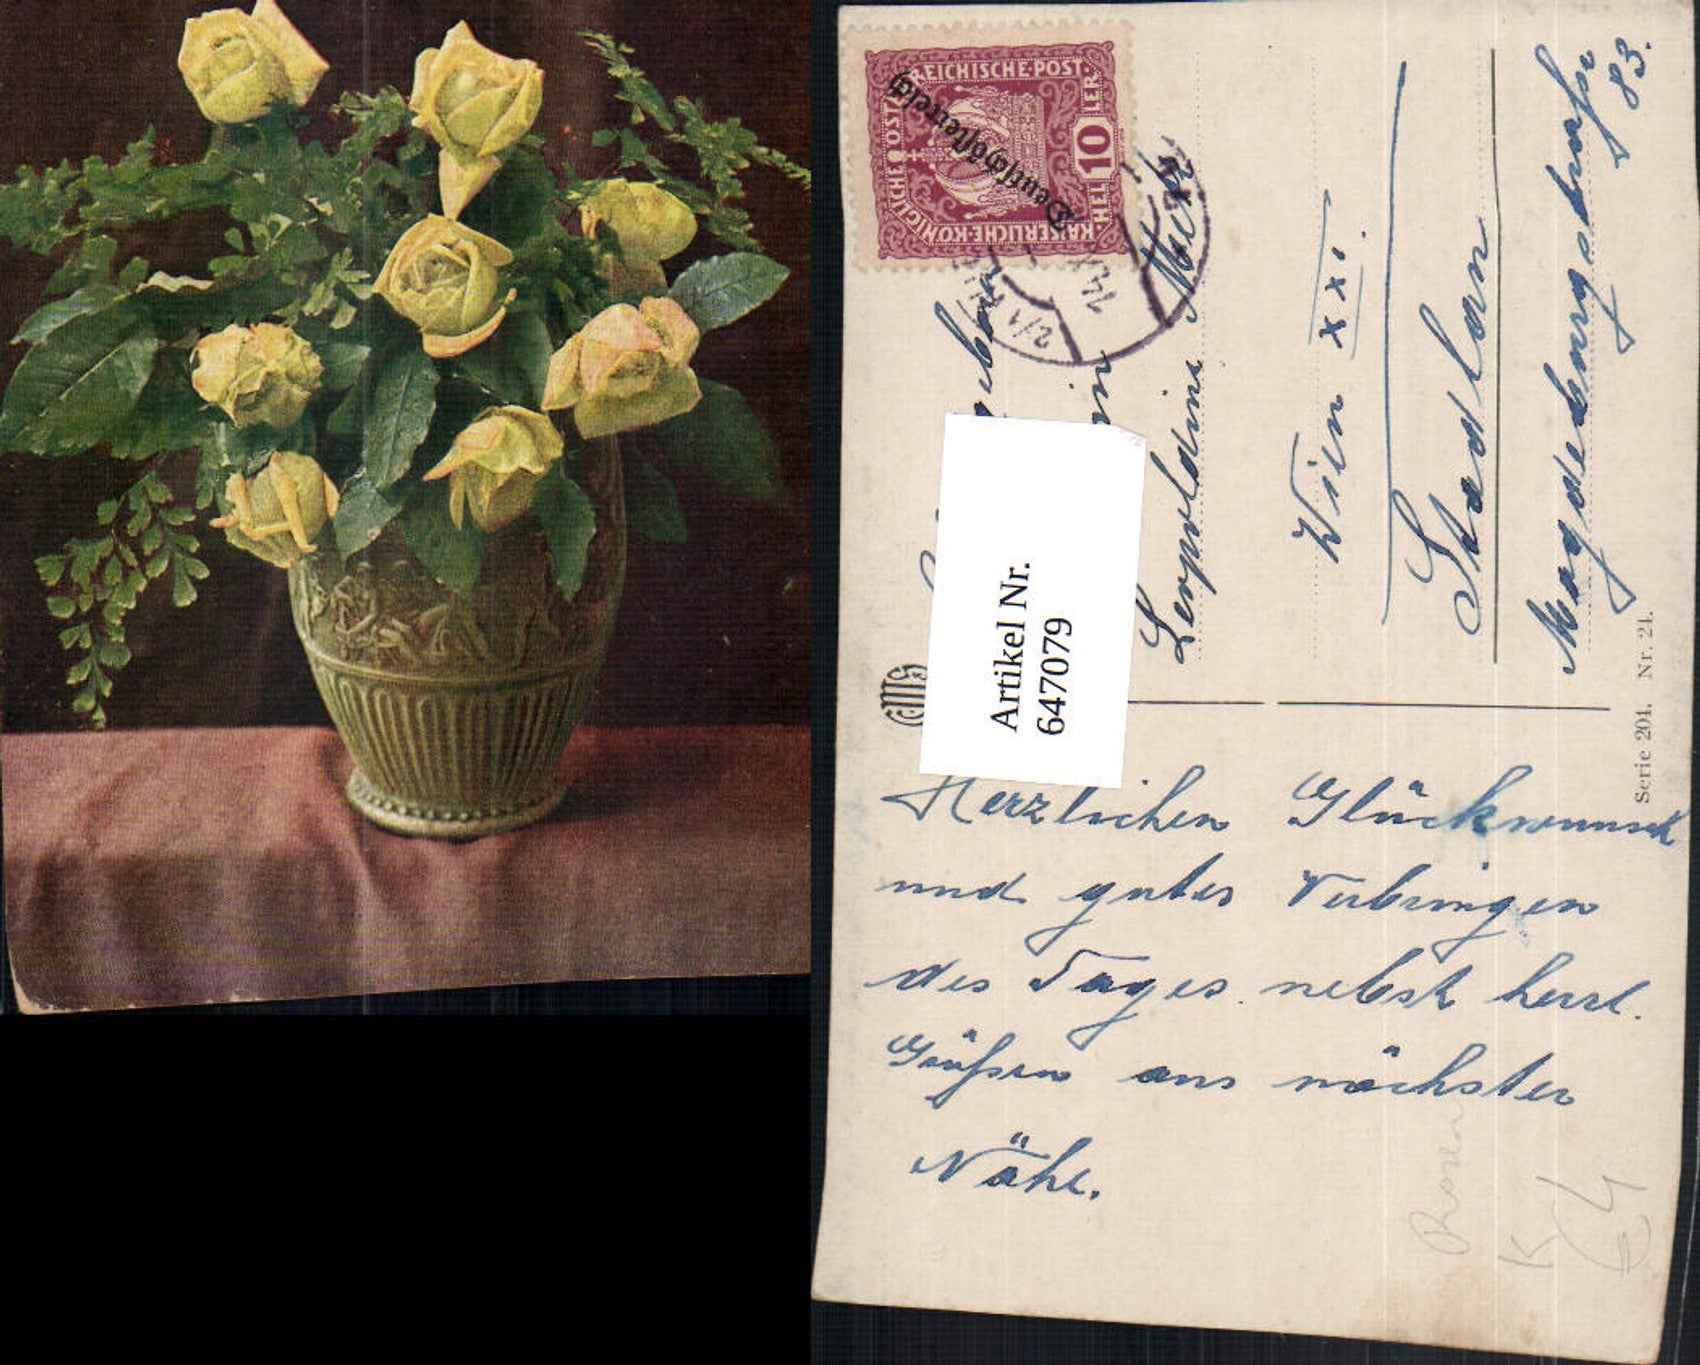 KAISERLICHE KÖNIGLICHE ÖSTERREICHISCHE POST
HELLER
10
Deutschösterreich
2/1 WIEN
14. X
Artikel Nr.
647079
Leopoldine
Wien XXI.
Stadlau
Magdeburgstraße
83.
Serie 204. Nr. 21.
Herzlichen Glückwunsch
und gutes Verbringen
des Tages nebst herzl.
Grüßen aus nächster
Nähe.
Rosen
K